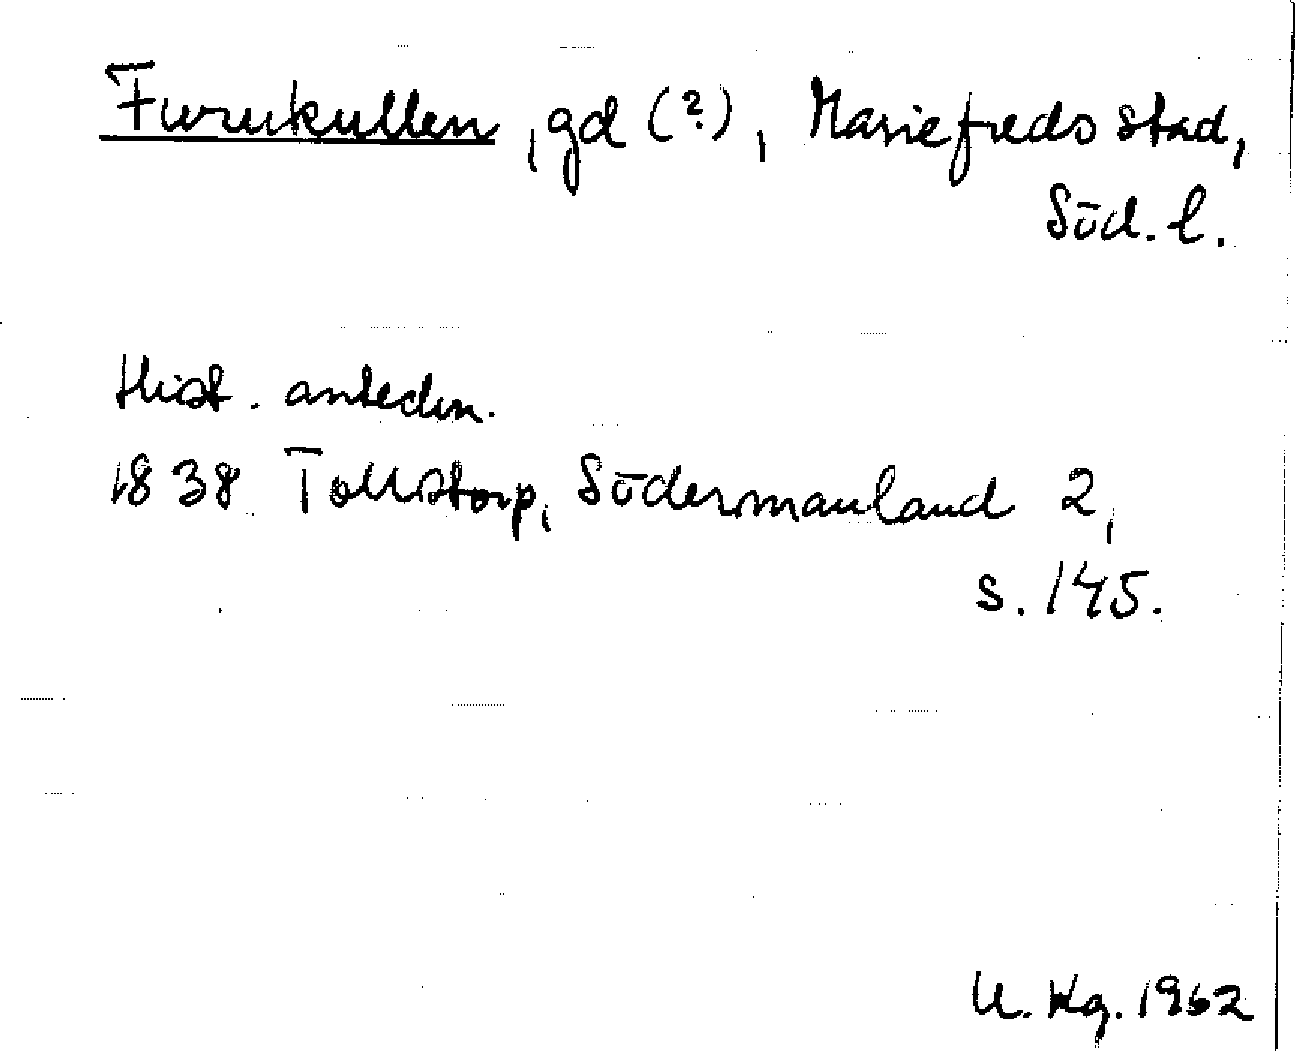 Furukullen, gd (?), Mariefreds stad,
Söd. l.
Hist. anteckn.
1838 Tollstorp, Södermanland 2,
s. 145.
U. Hg. 1962